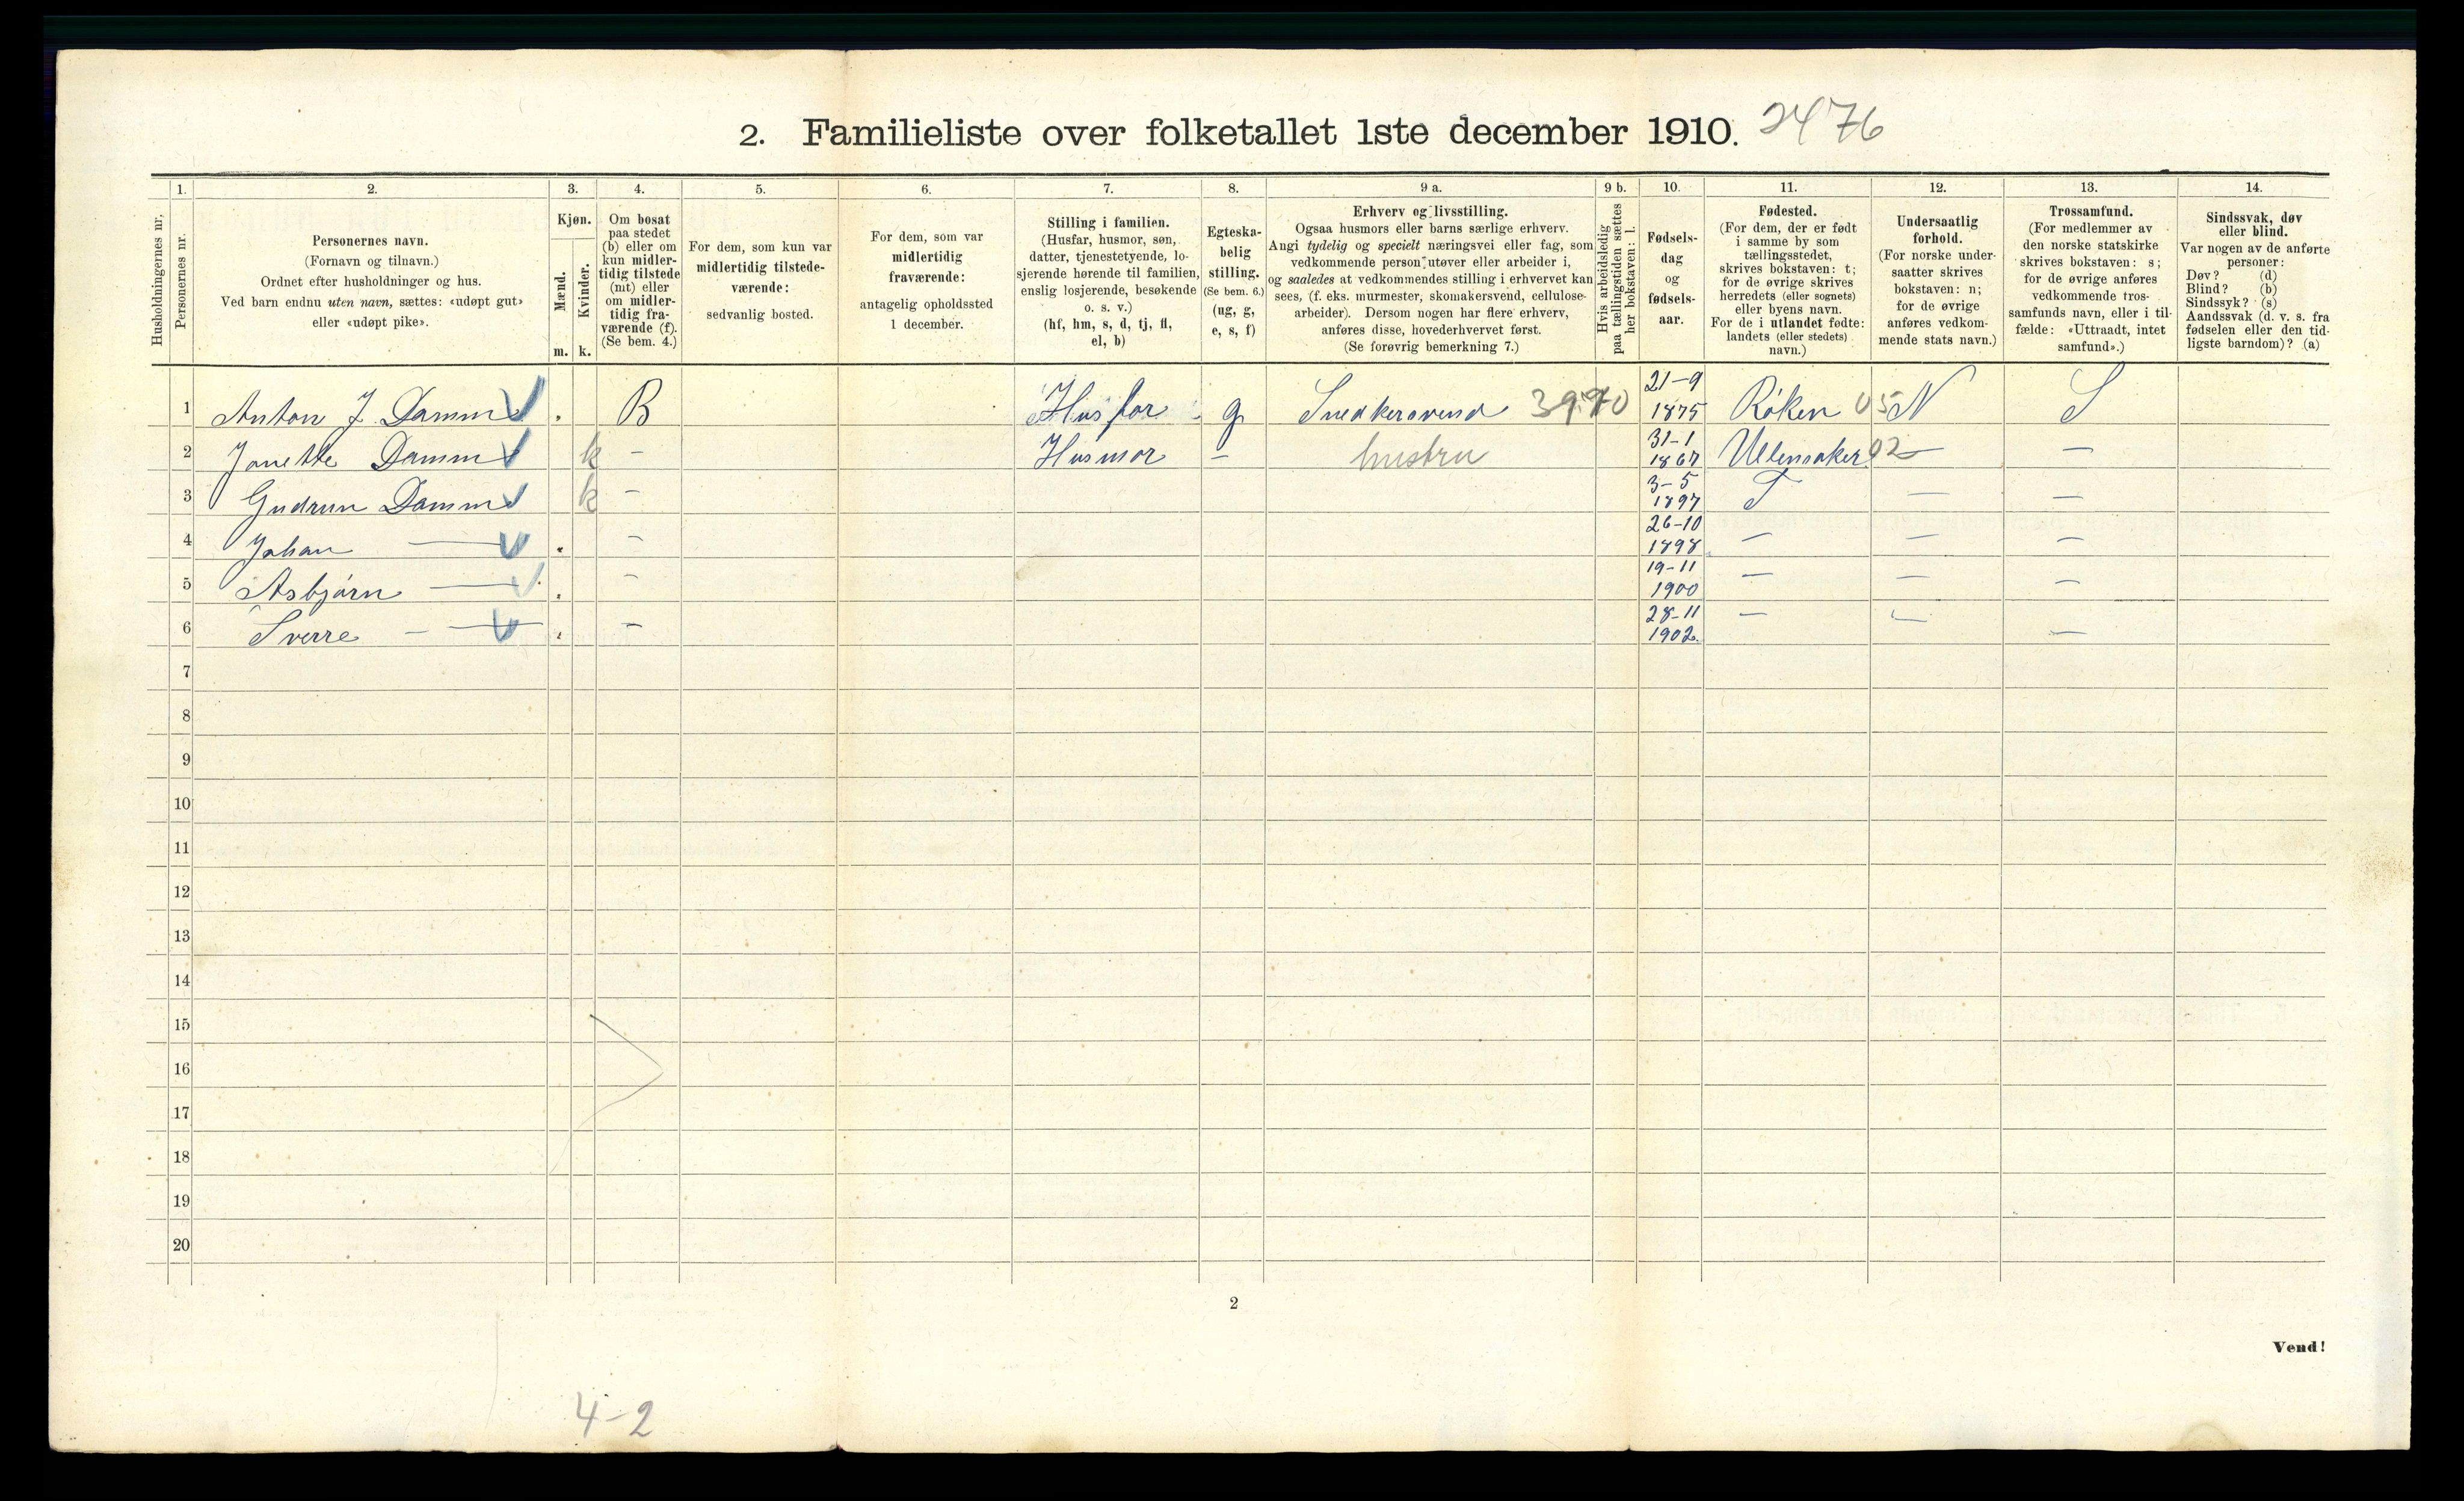 2. Familieliste over folketallet 1ste december 1910. 2476
Husholdningernes nr.
1.
Personernes nr.
2.
Personernes navn.
(Fornavn og tilnavn.)
Ordnet efter husholdninger og hus.
Ved barn endnu uten navn, sættes: «udøpt gut»
eller «udøpt pike».
3.
Kjøn.
Mænd.
Kvinder.
m. k.
4.
Om bosat
paa stedet
(b) eller om
kun midler-
tidig tilstede
(mt) eller
om midler-
tidig fra-
værende (f).
(Se bem. 4.)
5.
For dem, som kun var
midlertidig tilstede-
værende:
sedvanlig bosted.
6.
For dem, som var
midlertidig
fraværende:
antagelig opholdssted
1 december.
7.
Stilling i familien.
(Husfar, husmor, søn,
datter, tjenestetyende, lo-
sjerende hørende til familien,
enslig losjerende, besøkende
o. s. v.)
(hf, hm, s, d, tj, fl,
el, b)
8.
Egteska-
belig
stilling.
(Se bem. 6.)
(ug, g,
e, s, f)
9 a.
Erhverv og livsstilling.
Ogsaa husmors eller barns særlige erhverv.
Angi tydelig og specielt næringsvei eller fag, som
vedkommende person utøver eller arbeider i,
og saaledes at vedkommendes stilling i erhvervet kan
sees, (f. eks. murmester, skomakersvend, cellulose-
arbeider). Dersom nogen har flere erhverv,
anføres disse, hovederhvervet først.
(Se forøvrig bemerkning 7.)
9 b.
Hvis arbeidsledig
paa tællingstiden sættes
her bokstaven: l.
10.
Fødsels-
dag
og
fødsels-
aar.
11.
Fødested.
(For dem, der er født
i samme by som
tællingsstedet,
skrives bokstaven: t;
for de øvrige skrives
herredets (eller sognets)
eller byens navn.
For de i utlandet fødte:
landets (eller stedets)
navn.)
12.
Undersaatlig
forhold.
(For norske under-
saatter skrives
bokstaven: n;
for de øvrige
anføres vedkom-
mende stats navn.)
13.
Trossamfund.
(For medlemmer av
den norske statskirke
skrives bokstaven: s;
for de øvrige anføres
vedkommende tros-
samfunds navn, eller i til-
fælde: «Uttraadt, intet
samfund».)
14.
Sindssvak, døv
eller blind.
Var nogen av de anførte
personer:
Døv? (d)
Blind? (b)
Sindssyk? (s)
Aandssvak (d. v. s. fra
fødselen eller den tid-
ligste barndom)? (a)
1 Anton J. Damm . B Husfar g Snedkersvend 21-9 1875 Røken 05 N S
2 Janette Damm k - Husmor - hustru 31-1 1867 Ullensaker 02 - -
3 Gudrun Damm k - 3-5 1897 T - -
4 Johan — . - 26-10 1898 - - -
5 Asbjørn — . - 19-11 1900 - - -
6 Sverre - — . - 28-11 1902. - - -
7
8
9
10
11
12
13
14
15
16
17
18
19
20
2
Vend!
4-2